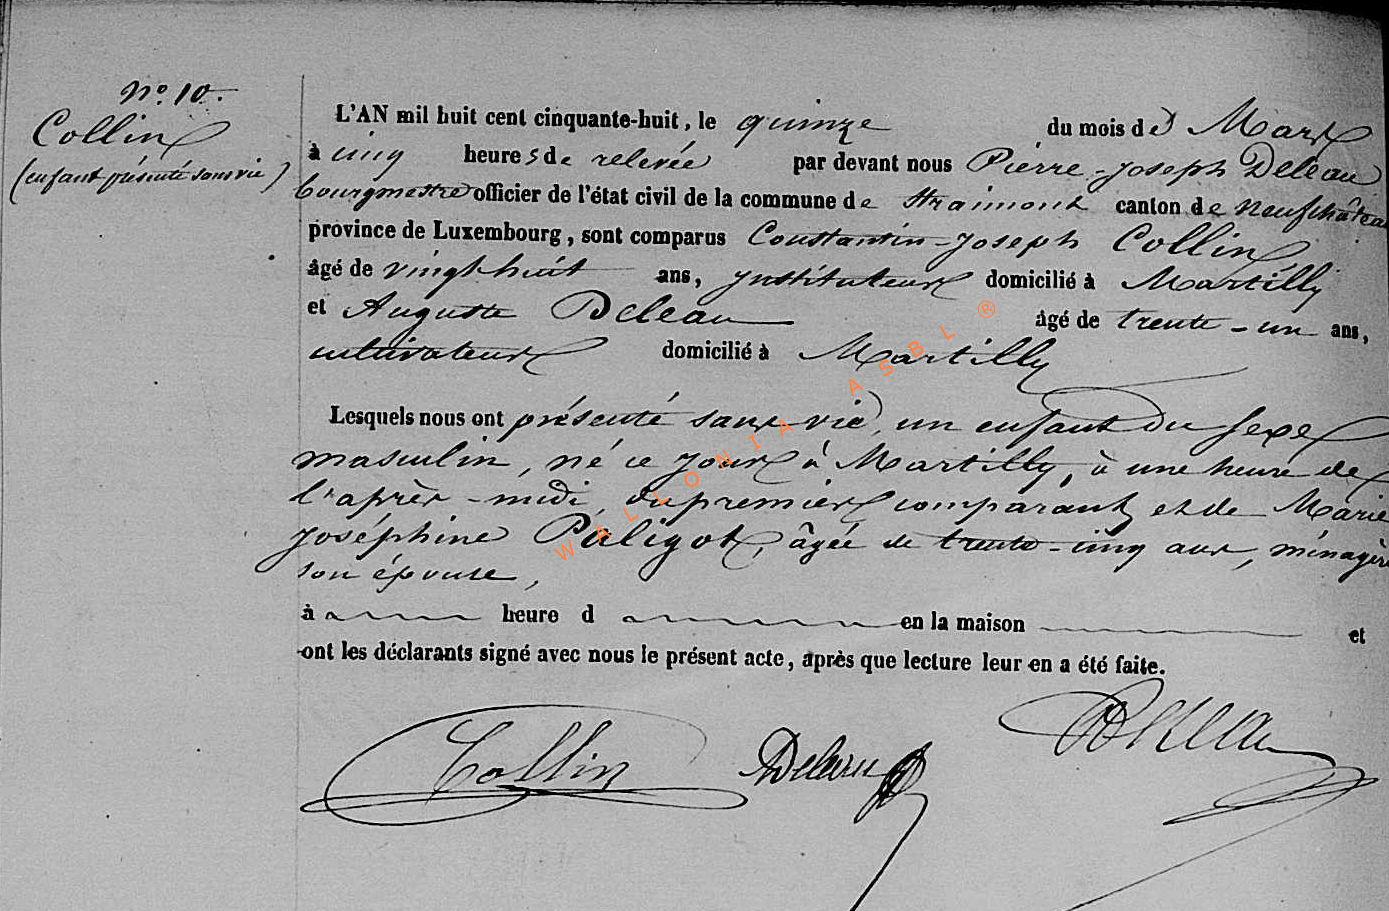 N° 10.
Collin
(enfant présenté sans vie)
L'AN mil huit cent cinquante-huit, le quinze du mois de Mars
à cinq heures de relevée par devant nous Pierre-Joseph Deleau
bourgmestre officier de l'état civil de la commune de Straimont canton de Neufchâteau
province de Luxembourg, sont comparus Constantin-Joseph Collin
âgé de vingt-huit ans, Instituteur domicilié à Martilly
et Auguste Deleau âgé de trente-un ans,
cultivateur domicilié à Martilly
Lesquels nous ont présenté sans vie, un enfant du sexe
masculin, né ce jour à Martilly, à une heure de
l'après-midi, du premier comparant et de Marie
Joséphine Paligot, âgée de trente-cinq ans, ménagère
son épouse,
à heure d en la maison et
ont les déclarants signé avec nous le présent acte, après que lecture leur en a été faite.
Collin Deleau Deleau
WALLONIA ASBL ®